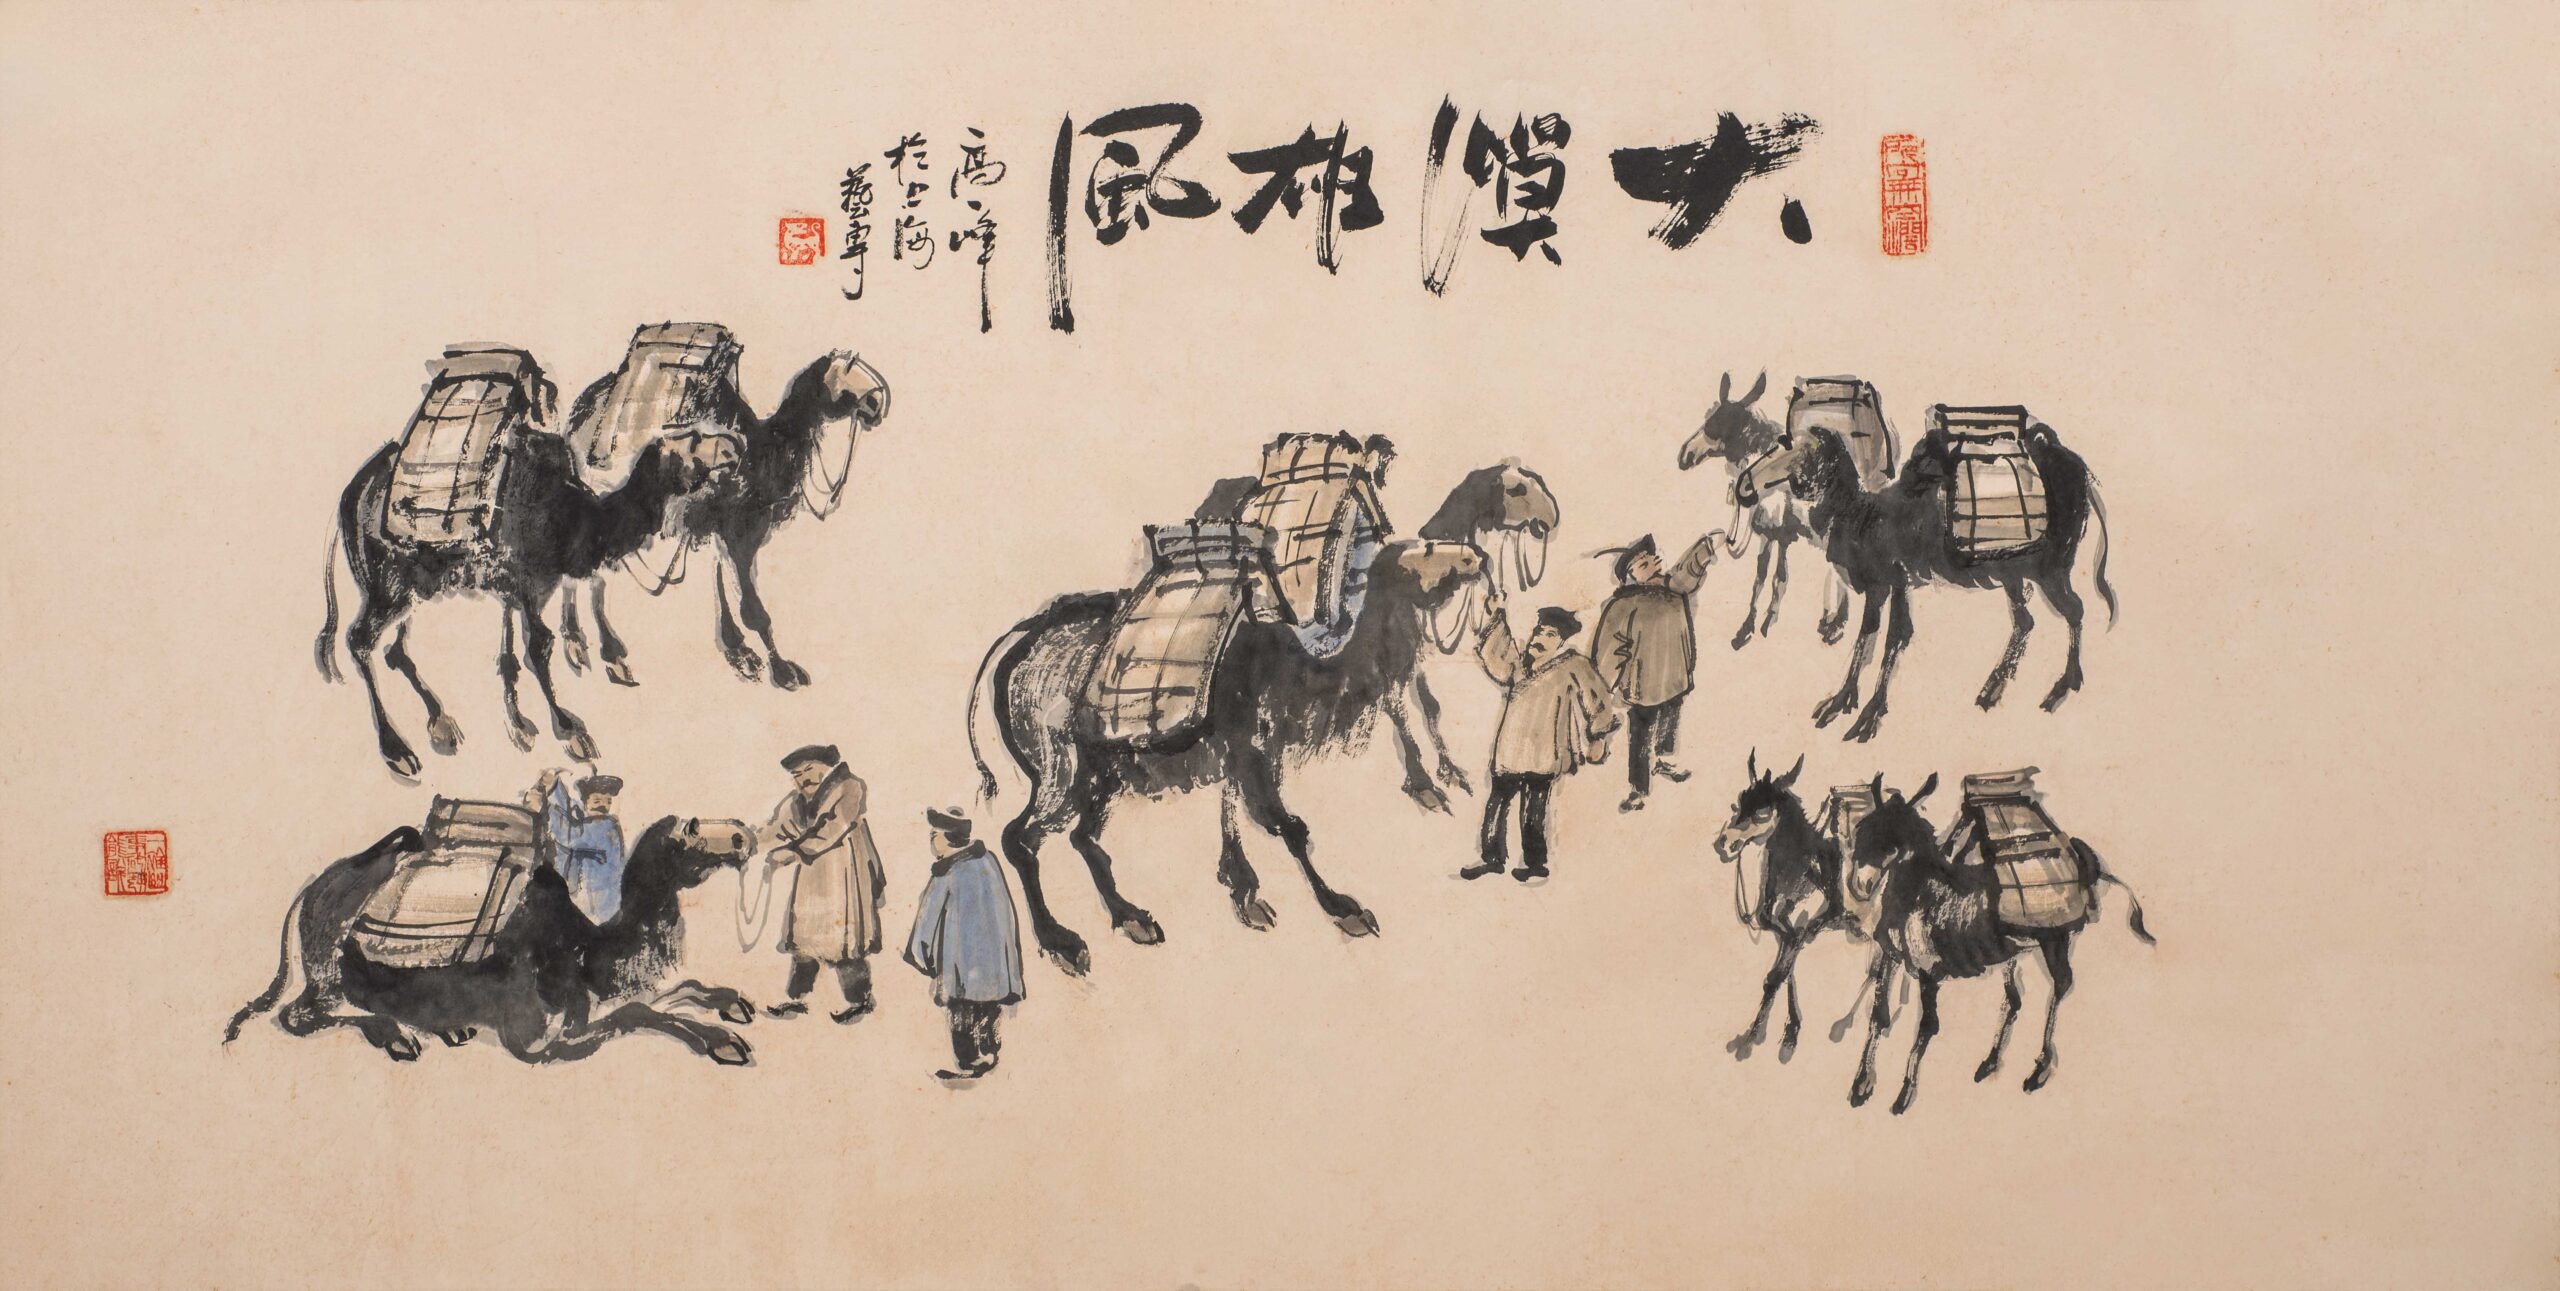 大漠雄風
高峰
於上海
藝專